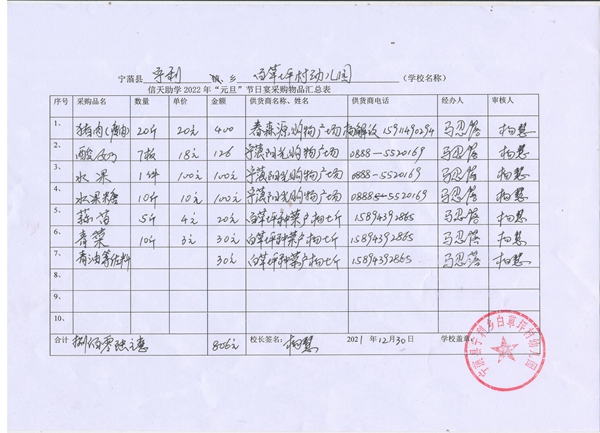 宁蒗县 宁利 镇、乡 白草坪村幼儿园 (学校名称)
信天助学 2022 年“元旦”节日宴采购物品汇总表
序号 采购品名 数量 单价 金额 供货商名称、姓名 供货商电话 经办人 审核人
1、 猪肉 20斤 20元 400 春森源购物广场 15911490294 马忍落 杨慧
2、 酸奶 7板 18元 126 宁蒗阳光购物广场 0888-5520169 马忍落 杨慧
3、 水果 1件 100元 100元 宁蒗阳光购物广场 0888-5520169 马忍落 杨慧
4、 水果糖 10斤 10元 100元 宁蒗阳光购物广场 0888-5520169 马忍落 杨慧
5、 蒜苗 5斤 4元 20元 白草坪种菜户 15894392865 马忍落 杨慧
6、 青菜 10斤 3元 30元 白草坪种菜户 15894392865 马忍落 杨慧
7、 香油等佐料 30元 白草坪种菜户 15894392865 马忍落 杨慧
8、
9、
10、
合计 捌佰零陆元整 806元 校长签名: 杨慧 2021 年12月30日 学校盖章:
宁蒗县宁利乡白草坪村幼儿园